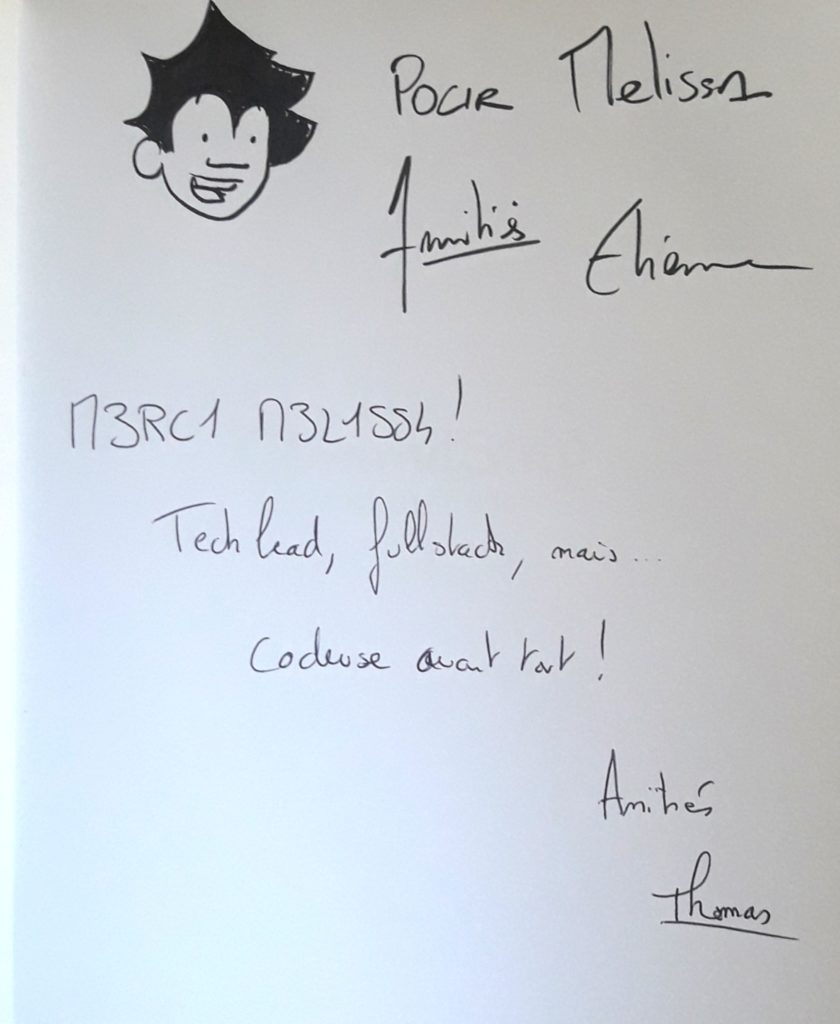 Pour Melissa
Amitiés
Etienne
M3RC1 M3L1SS4!
Tech lead, fullstack, mais...
Codeuse avant tout!
Amitiés
Thomas